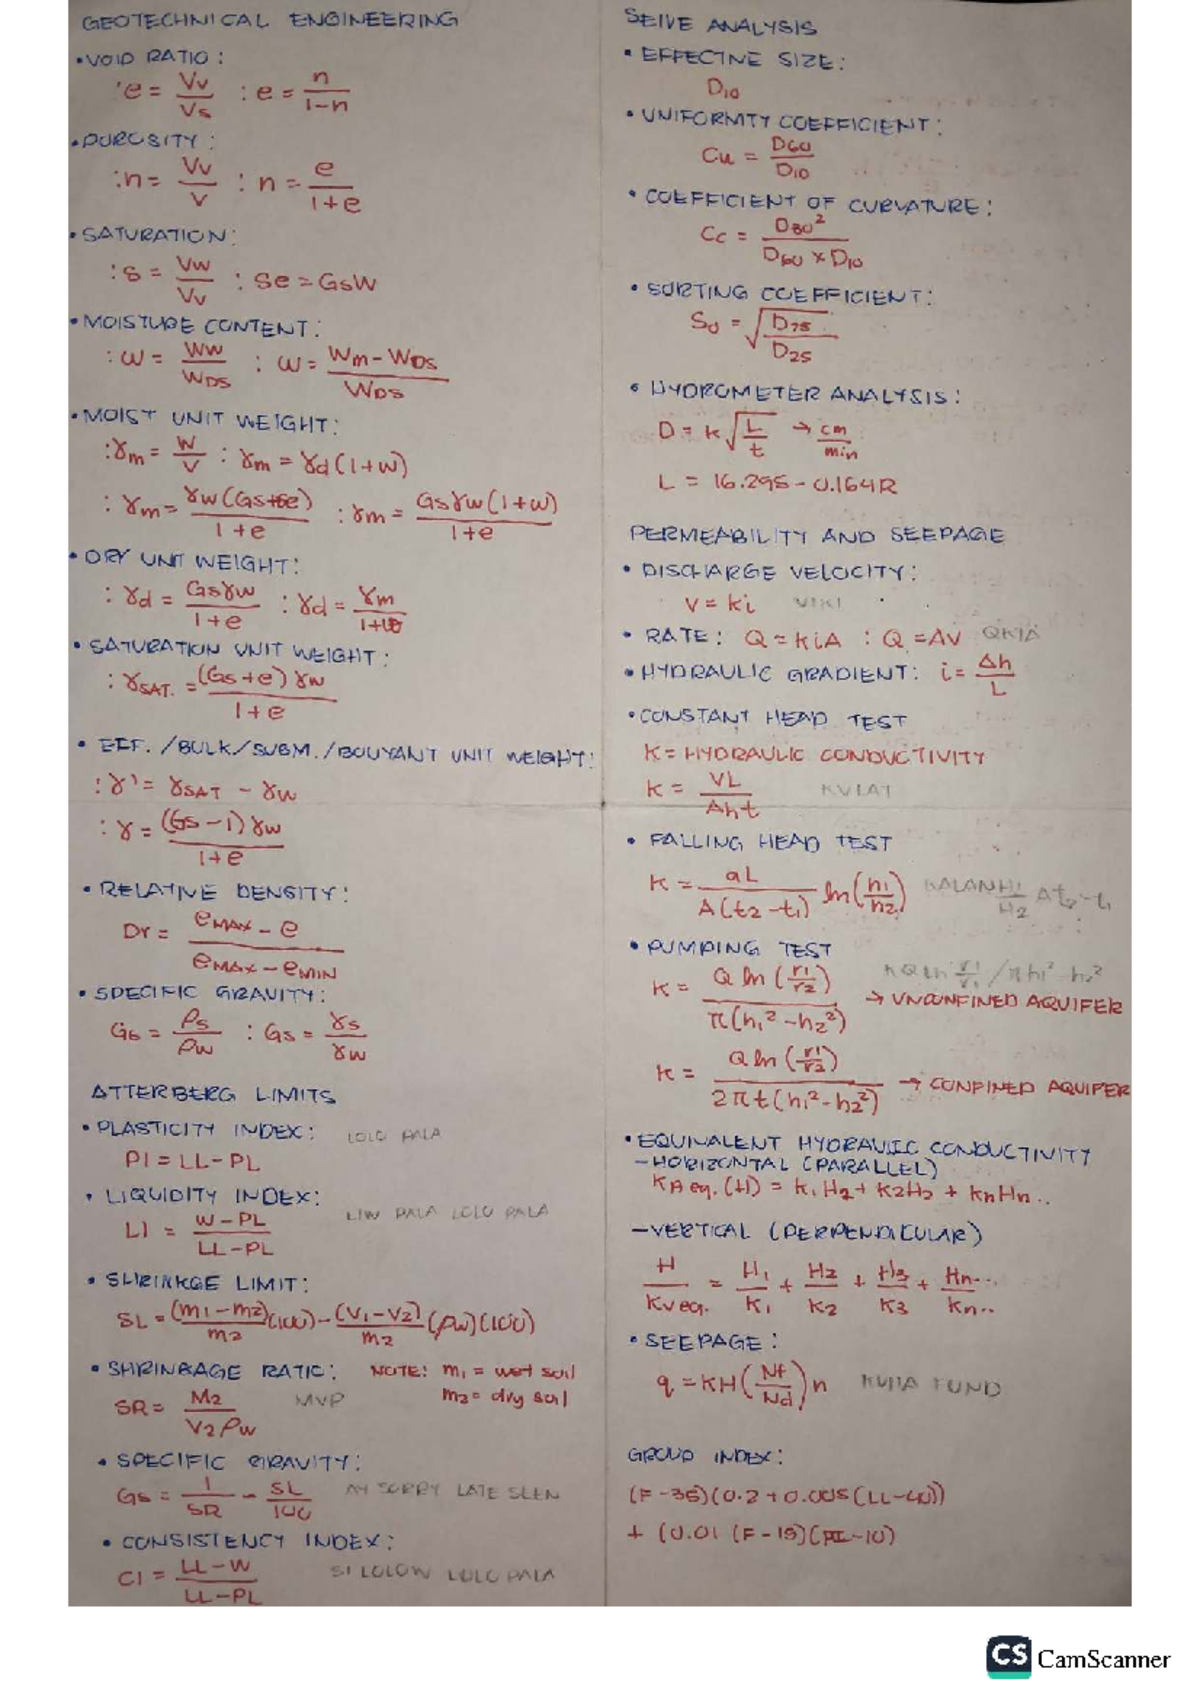 GEOTECHNICAL ENGINEERING
• VOID RATIO :
: e = Vv/Vs : e = n/1-n
• POROSITY :
: n = Vv/V : n = e/1+e
• SATURATION :
: S = Vw/Vv : Se = GsW
• MOISTURE CONTENT :
: ω = Ww/WDS : ω = Wm - WDS/WDS
• MOIST UNIT WEIGHT :
: γm = W/V : γm = γd (1+w)
: γm = γw (Gs+Se)/1+e : γm = Gsγw (1+ω)/1+e
• DRY UNIT WEIGHT :
: γd = Gsγw/1+e : γd = γm/1+ω
• SATURATION UNIT WEIGHT :
: γSAT. = (Gs+e) γw/1+e
• EFF. /BULK/SUBM. /BOUYANT UNIT WEIGHT :
: γ' = γSAT - γw
: γ = (Gs-1) γw/1+e
• RELATIVE DENSITY :
Dr = eMAX - e/eMAX - eMIN
• SPECIFIC GRAVITY :
Gs = ρs/ρw : Gs = γs/γw
ATTERBERG LIMITS
• PLASTICITY INDEX : LOLO PALA
PI = LL - PL
• LIQUIDITY INDEX : LIW PALA LOLO PALA
LI = W - PL/LL - PL
• SHRINKGE LIMIT :
SL = (m1 - m2)/m2 (100) - (V1 - V2)/m2 (ρw)(100)
• SHRINKAGE RATIO : NOTE: m1 = wet soil
m2 = dry soil
SR = M2/V2 ρw MVP
• SPECIFIC GRAVITY :
Gs = 1/SR - SL/100 AY SORRY LATE SLEN
• CONSISTENCY INDEX :
CI = LL - W/LL - PL SI LOLOW LOLO PALA
SEIVE ANALYSIS
• EFFECTIVE SIZE :
D10
• UNIFORMITY COEFFICIENT :
Cu = D60/D10
• COEFFICIENT OF CURVATURE :
Cc = D30²/D60 x D10
• SORTING COEFFICIENT :
So = √D75/D25
• HYDROMETER ANALYSIS :
D = K √L/t → cm/min
L = 16.295 - 0.164R
PERMEABILITY AND SEEPAGE
• DISCHARGE VELOCITY :
V = Ki VIKI
• RATE : Q = KiA : Q = AV QKIA
• HYDRAULIC GRADIENT : i = Δh/L
• CONSTANT HEAD TEST
K = HYDRAULIC CONDUCTIVITY
K = VL/Aht KVLAT
• FALLING HEAD TEST
K = aL/A(t2 - t1) ln (h1/h2) KALAN H1/H2 At2 - t1
• PUMPING TEST
K = Q ln (r1/r2)/π(h1² - h2²) → UNCONFINED AQUIFER
K = Q ln (r1/r2)/2πt (h1² - h2²) → CONFINED AQUIFER
• EQUIVALENT HYDRAULIC CONDUCTIVITY
- HORIZONTAL (PARALLEL)
eq. (H) = K1H2 + K2H2 + KnHn ..
- VERTICAL (PERPENDICULAR)
H/Kv eq. = H1/K1 + H2/K2 + H3/K3 + Hn.../Kn..
• SEEPAGE :
q = KH (Nf/Nd) n KUHA FUND
GROUP INDEX :
(F - 35)(0.2 + 0.005 (LL - 40))
+ (0.01 (F - 15)(PI - 10)
CS CamScanner